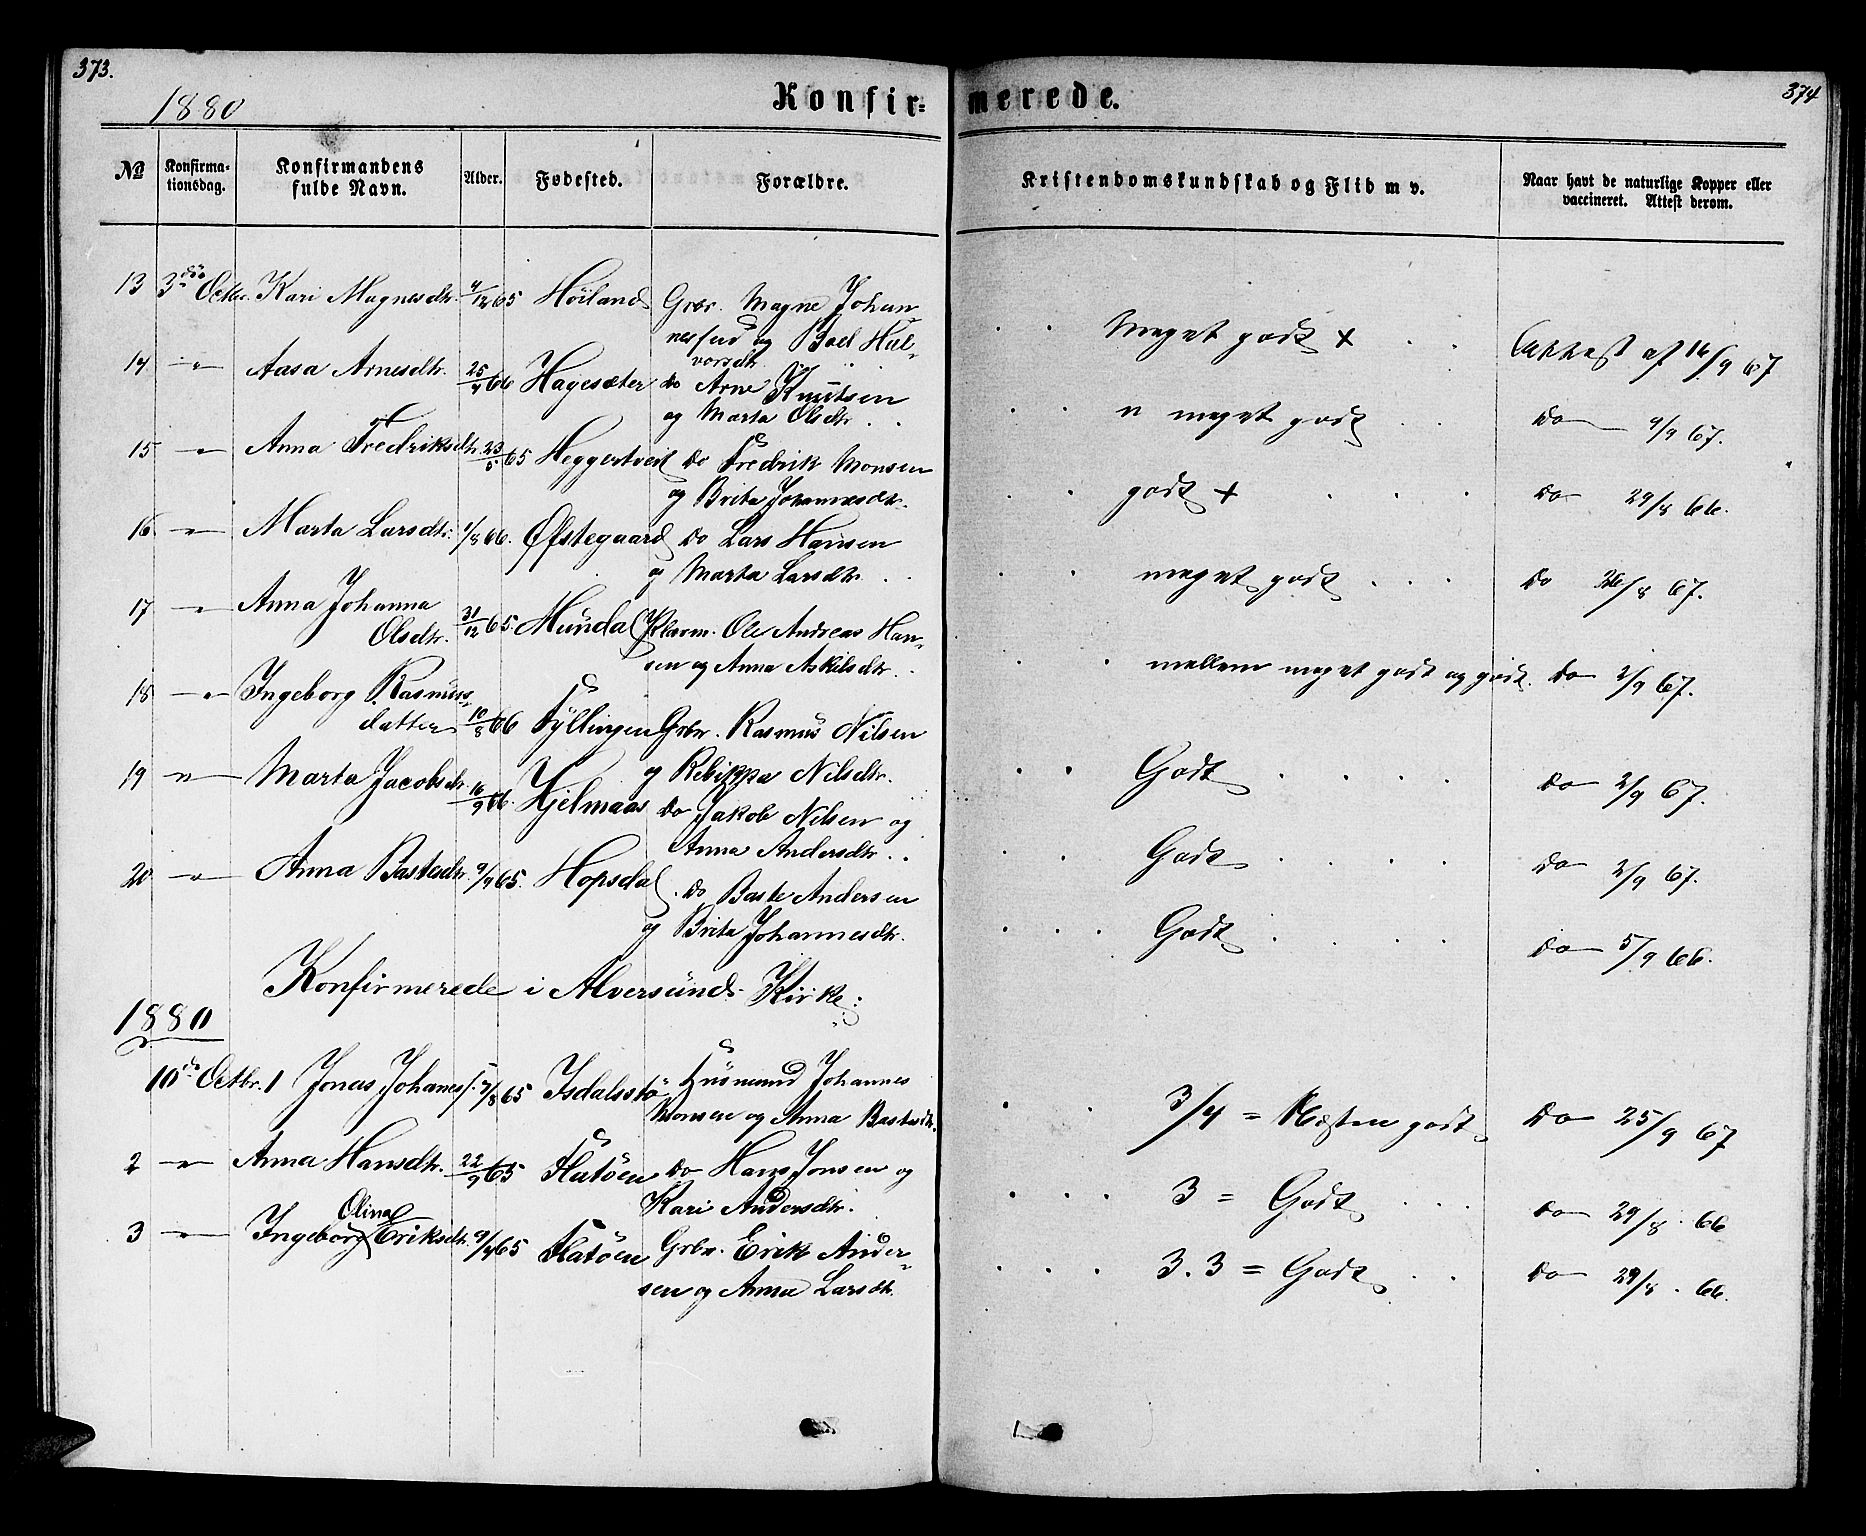 373.
1880
Konfir=
merede.
374
No
Konfirma-
tionsdag.
Konfirmandens
fulde Navn.
Alder.
Fødested.
Forældre.
Kristendomskundskab og Flid m v.
Naar havt de naturlige Kopper eller
vaccineret. Attest derom.
13 3die Octbr. Kari Magnesdtr. 4/12 65 Höiland Grbr. Magne Johan-
nessen og Boel Hal-
vorsdtr.
Meget godt + Attest af 16/9 67
14 -"- Aasa Arnesdtr. 25/4 66 Hagesæter do Arne Knutsen
og Marta Olsdtr.
n meget godt do 9/9 67.
15 -"- Anna Fredriksdtr. 23/5 65 Heggertveit do Fredrik Monsen
og Brita Johannesdtr.
godt + do 29/8 66.
16 -"- Marta Larsdtr. 1/8 66. Øfstegaard do Lars Hansen
og Marta Larsdtr.
meget godt do 26/8 67.
17 -"- Anna Johanna
Olsdtr. 31/12 65. Mundal Ole Andreas Han-
sen og Anna Askilsdtr.
mellem meget godt og godt. do 2/9 67.
18 -"- Ingeborg Rasmus-
datter 10/8 66 Fyllingen Grbr. Rasmus Nilsen
og Rebikka Nilsdtr.
Godt do 2/9 67.
19 -"- Marta Jacobsdtr. 16/9 66. Hjelmaas do Jakob Nilsen og
Anna Andersdtr.
Godt do 2/9 67.
20 -"- Anna Bastesdtr. 9/9 65. Hopsdal do Baste Andersen
og Brita Johannesdtr.
Godt do 5/9 66.
Konfirmerede i Alversund Kirke:
1880
10de Octbr. 1 Jonas Johannes 7/8 65 Isdalstö Husmand Johannes
Monsen og Anna Bastesdtr.
3/4 = Næsten godt do 25/9 67
2 -"- Anna Hansdtr. 22/9 65 Flatöen do Hans Jonsen og
Kari Andersdtr.
3 = Godt do 29/8 . 66
Olina
3 -"- Ingeborg Eriksdtr. 9/4 65 Flatöen Grbr. Erik Ander-
sen og Anna Larsdtr.
3.3 = Godt do 29/8 . 66.